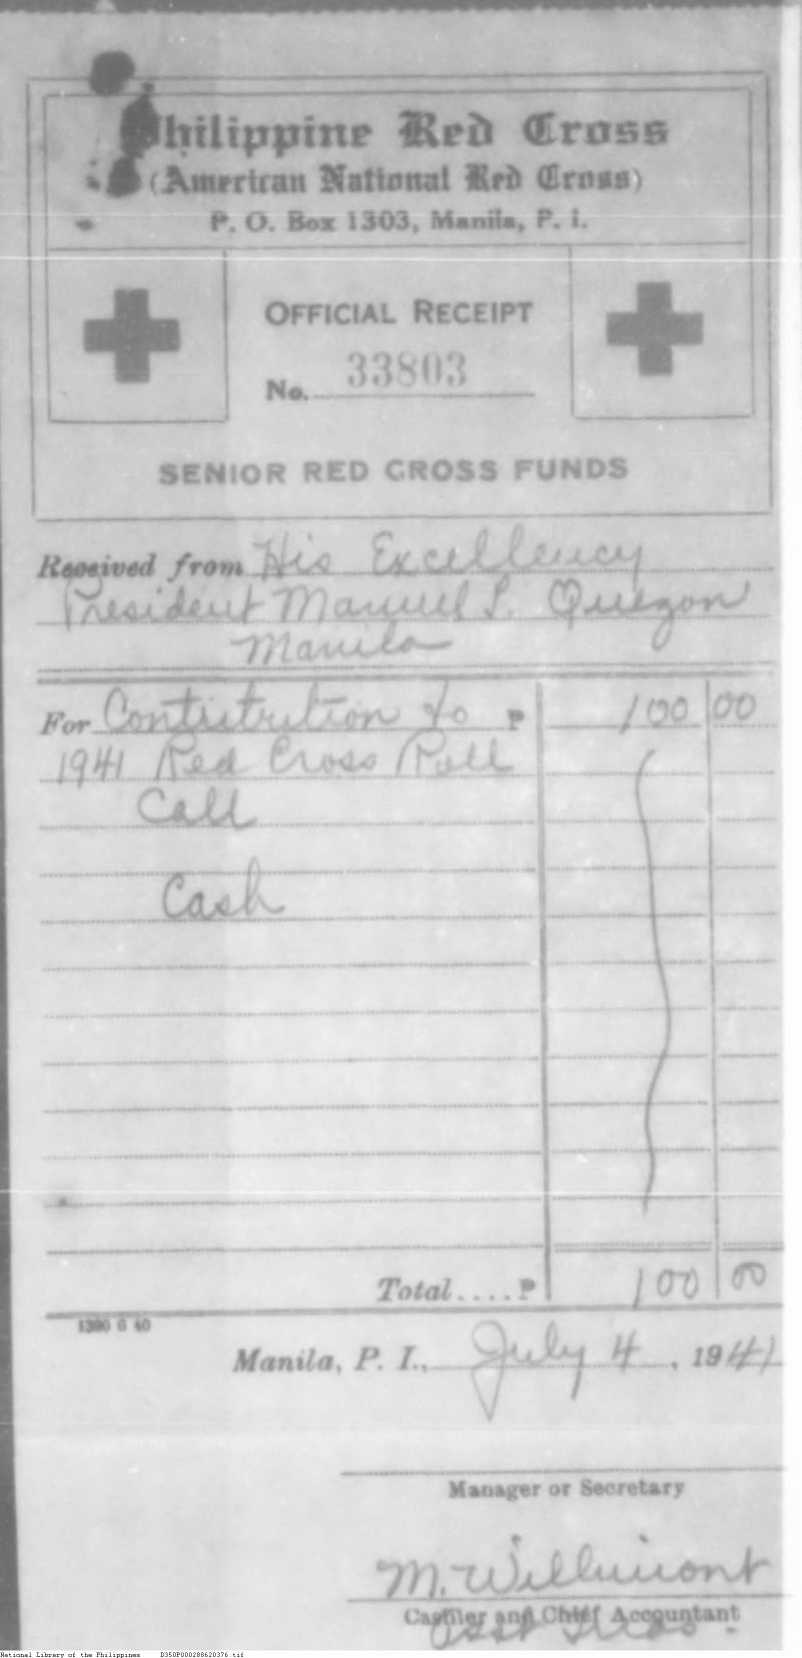 Philippine Red Cross
(American National Red Cross)
P. O. Box 1303, Manila, P. I.
OFFICIAL RECEIPT
No. 33803
SENIOR RED CROSS FUNDS
Received from His Excellency
President Manuel L. Quezon
Manila
For Contribution to ₱ 100 00
1941 Red Cross Roll
Call
Cash
Total....₱ 100 00
1390 G 40
Manila, P. I., July 4, 1941
Manager or Secretary
M. Wilhimont
Cashier and Chief Accountant
National Library of the Philippines D350P000288620376.tif